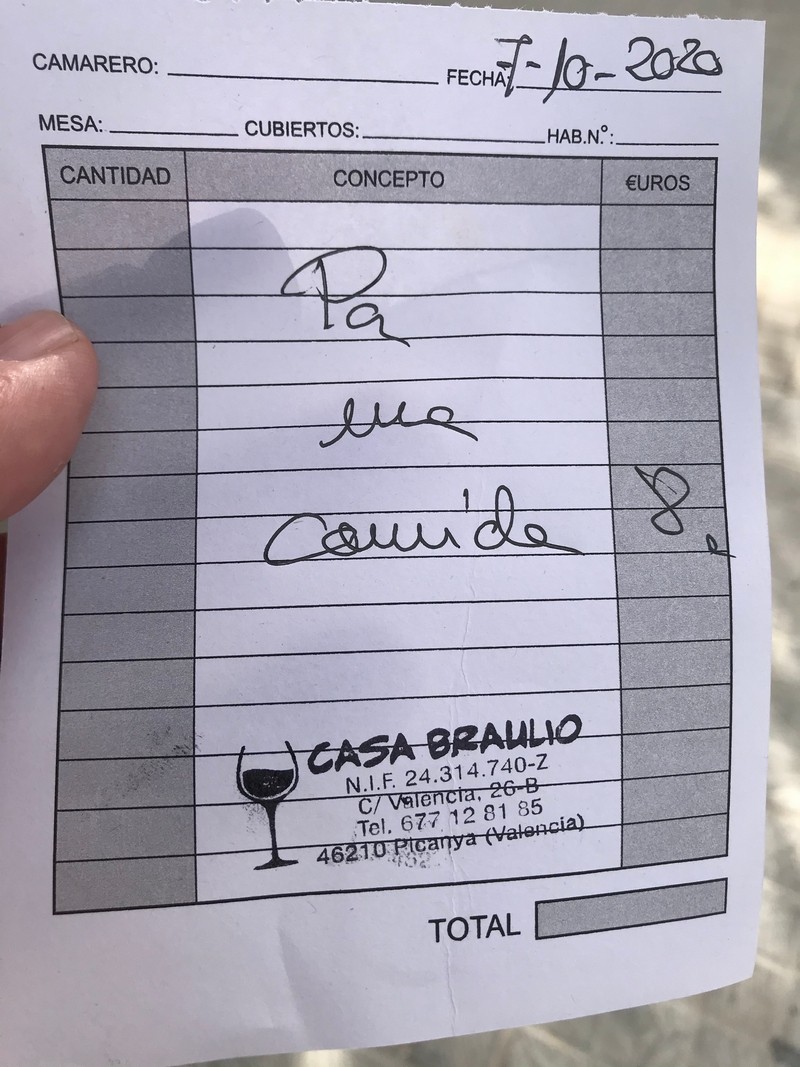 CAMARERO: FECHA: 7-10-2020
MESA: CUBIERTOS: HAB.N.º:
CANTIDAD CONCEPTO €UROS
Pa
una
Comida 8
CASA BRAULIO
N.I.F. 24.314.740-Z
C/ Valencia, 26-B
Tel. 677 12 81 85
46210 Picanya (Valencia)
TOTAL